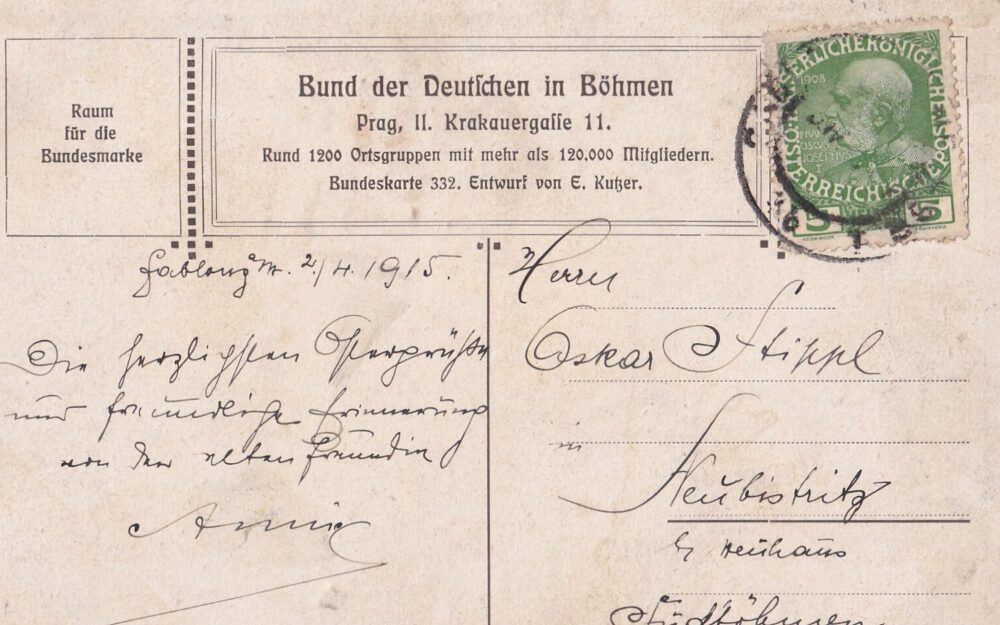 Raum
für die
Bundesmarke
Bund der Deutſchen in Böhmen
Prag, II. Krakauergaſſe 11.
Rund 1200 Ortsgruppen mit mehr als 120.000 Mitgliedern.
Bundeskarte 332. Entwurf von E. Kutzer.
KAISERLICHEKÖNIGLICHE
1908
FRAN
CISCVS
JOSEPHVS
ÖSTERREICHISCHE POST
5 5
Gablonz 2/4. 1915.
Die herzlichsten Ostergrüße
und freundliche Erinnerung
von der alten Freundin
Annie
Herrn
Oskar Stippl
in
Neubistritz
b/ Neuhaus
Südböhmen